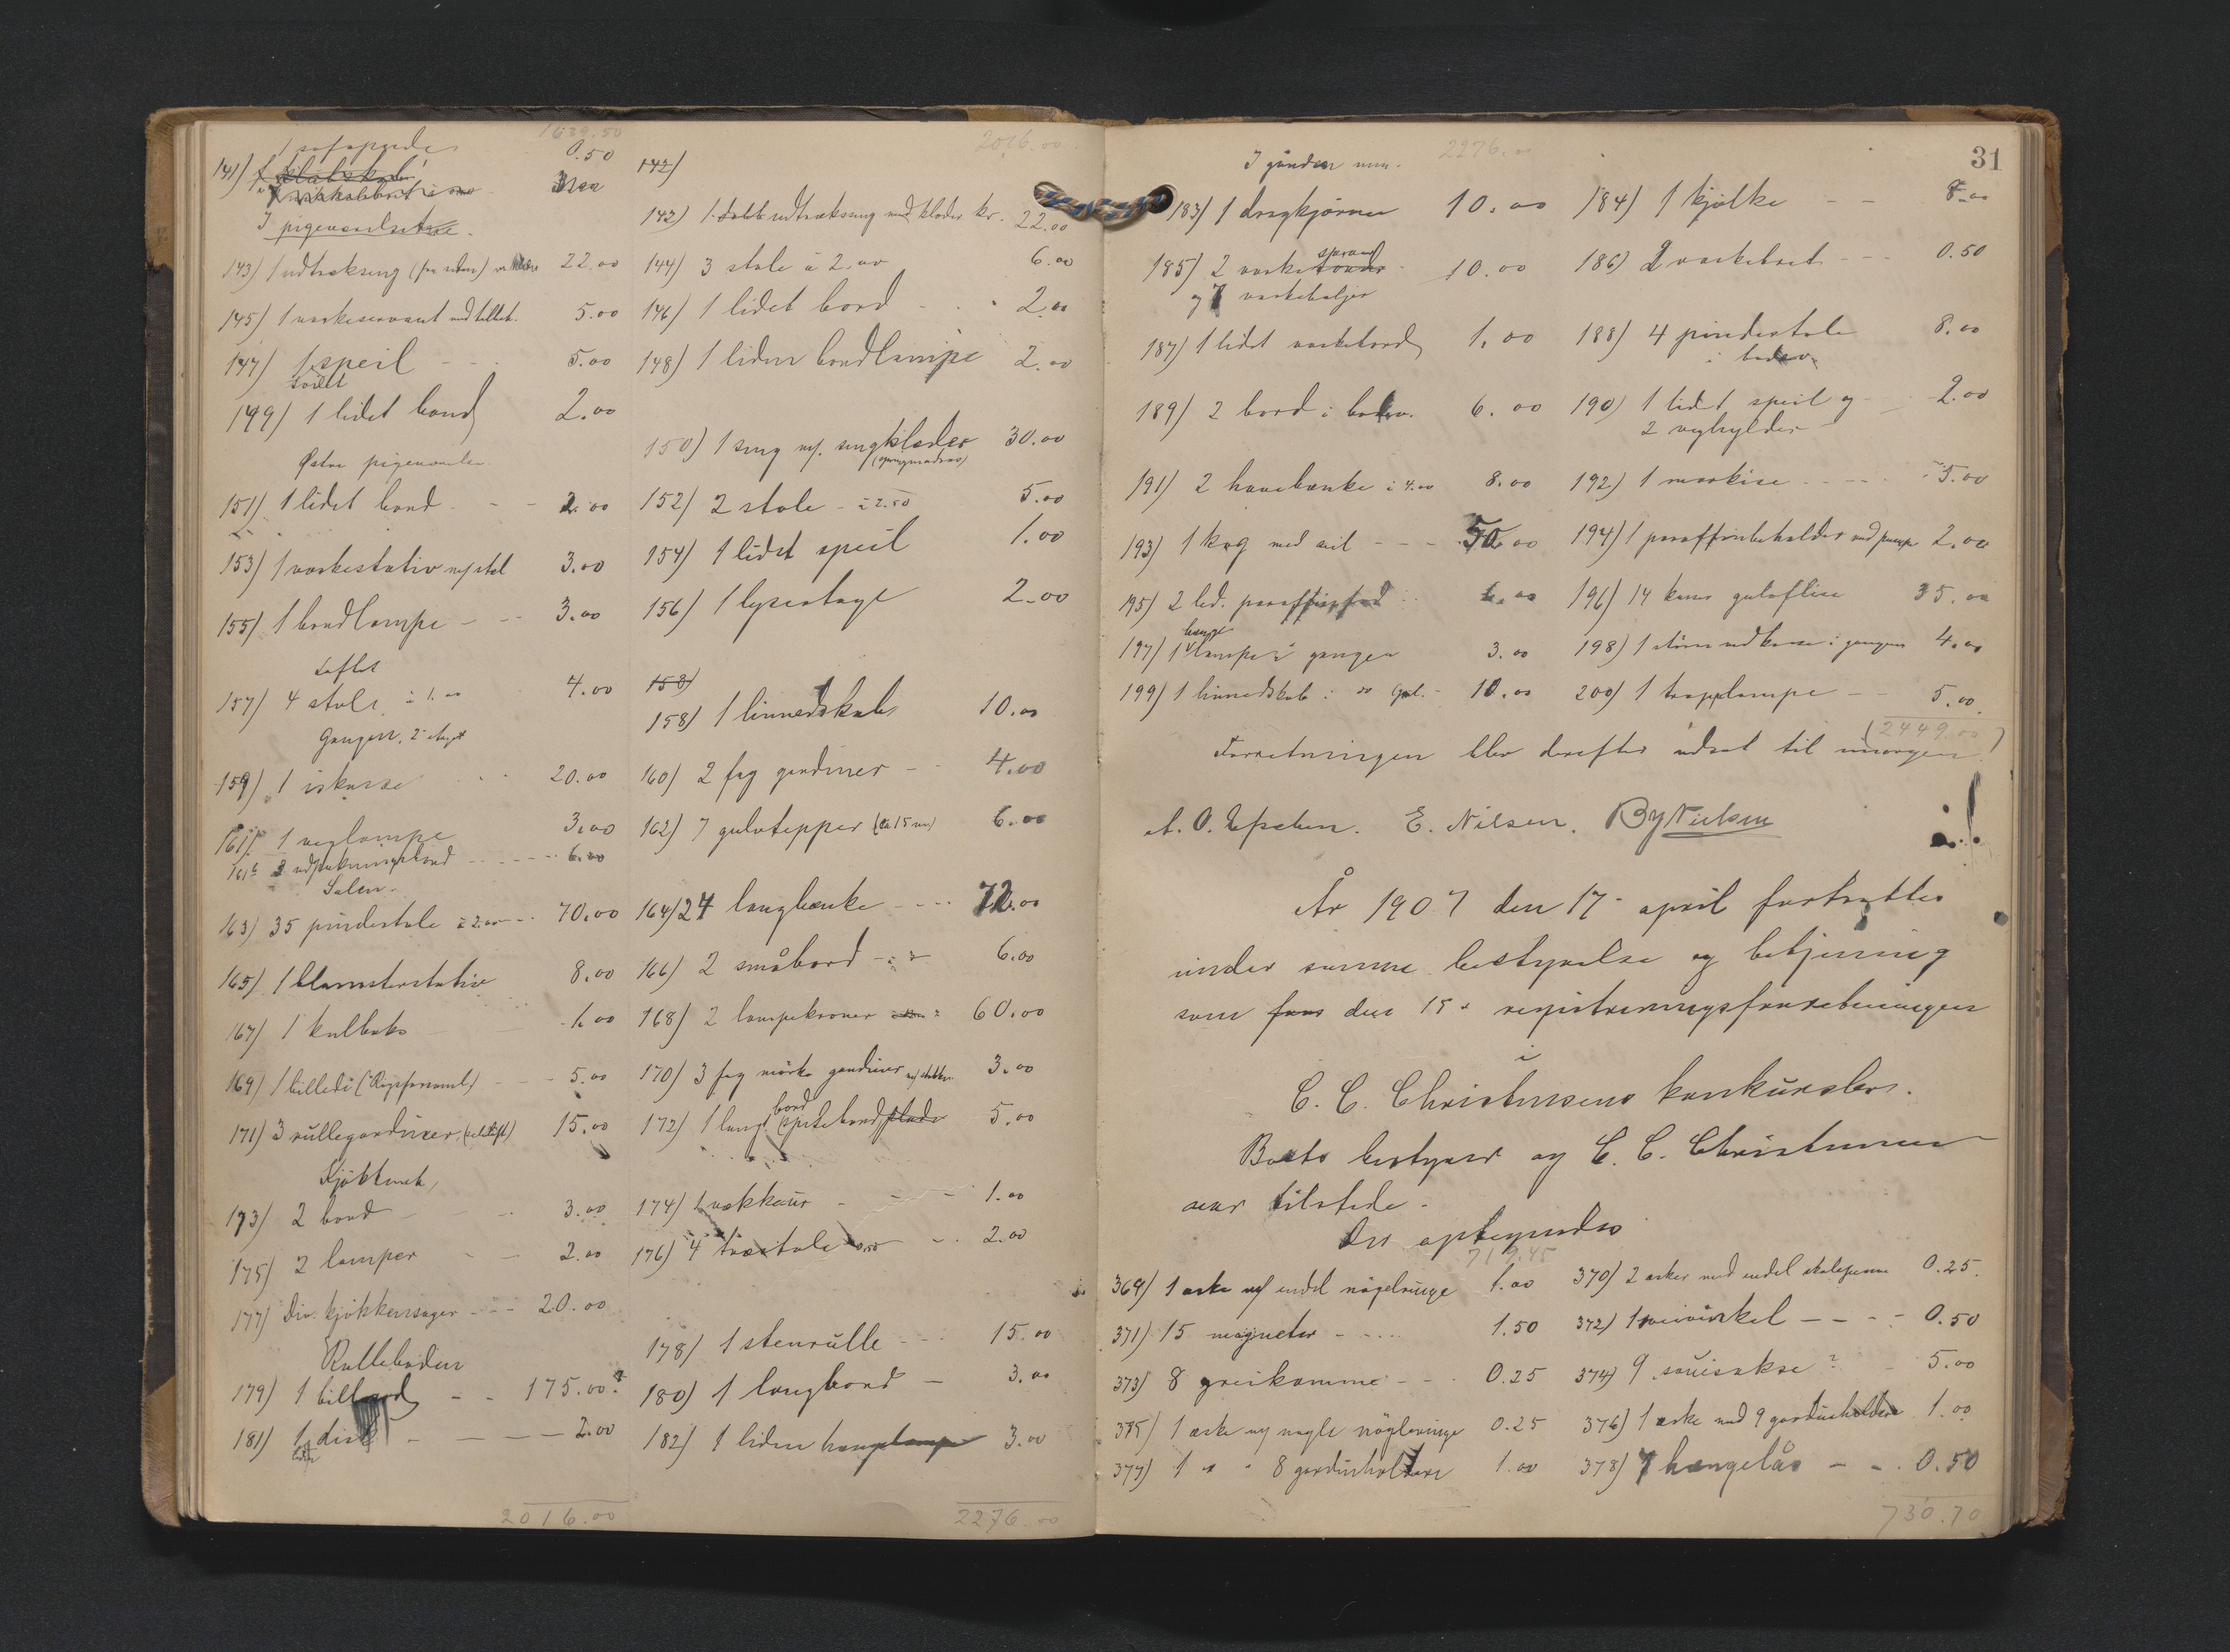 1639.50
1 sofapude 0.50
141)
I pigeværelset
143) 1 udtræksseng 22.00
145) 1 vaskeservant med toilet. 5.00
147) 1 speil 5.00
149) 1 lidet bord 2.00
Østre pigeværelse
151) 1 lidet bord 2.00
153) 1 vaskestativ m/ stel 3.00
155) 1 bordlampe 3.00
Loftet
157) 4 stole à 1.00 4.00
Gangen, 2 etage
159) 1 iskasse 20.00
161) 1 væglampe 3.00
161b 6.00
Salen.
163) 35 pindestole à 2.00 70.00
165) 1 blomsterstativ 8.00
167) 1 kulboks 1.00
169) 1 billede (Rigsforsaml.) 5.00
171) 3 rullegardiner 15.00
Kjøkkenet
173) 2 bord 3.00
175) 2 lamper 2.00
177) Div. kjøkkensager 20.00
Rulleboden
179) 1 billard 175.00?
181) 1 disk 2.00
2016.00
2016.00
142)
142) 1 udtræksseng med klæder kr. 22.00
144) 3 stole à 2.00 6.00
146) 1 lidet bord 2.00
148) 1 liden bordlampe 2.00
150) 1 seng m/. sengklæder 30.00
152) 2 stole à 2.50 5.00
154) 1 lidet speil 1.00
156) 1 lysestage 2.00
158)
158) 1 linnedskab 10.00
160) 2 fag gardiner 4.00
162) 7 gulvtepper 6.00
164) 24 langbænke 72.00
166) 2 småbord 6.00
168) 2 lampekroner 60.00
170) 3 fag mörke gardiner 3.00
172) 1 langt spisebord 5.00
174) 1 vækkeur 1.00
176) 4 træstole 2.00
178) 1 stenrulle 15.00
180) 1 langbord 3.00
182) 1 liden hængelampe 3.00
2276.00
31
2276.00
I gården
183) 1 dragkjærre 10.00 184) 1 kjælke 8.00
185) 2 vaske 10.00 186) 2 vaskebræt 0.50
og 7 vaskebaljer
187) 1 lidet vaskebord 1.00 188) 4 pindestole 8.00
189) 2 bord i 6.00 190) 1 lidet speil og 2.00
2 veghylder
191) 2 havebænke à 4.00 8.00 192) 1 markise 5.00
193) 1 kag med seil 50.00 194) 1 paraffinbeholder med pumpe 2.00
195) 2 led. paraffinfad 196) 14 kasser gulvfliser 35.00
197) 1 hænge lampe i gangen 3.00 198) 1 större vedkasse i gangen 4.00
199) 1 linnedskab 10.00 200) 1 trappelampe 5.00
(2449.00)
Forretningen blev derefter udsat til imorgen.
A. O. E. Nilsen.
År 1907 den 17 april fortsattes
under samme bestyrelse og betjening
som den 15 registreringsforretningen
i
C. C. Christensens konkursbo.
Boets bestyrer og C. C. Christensen
var tilstede.
Der optegnedes
719.45
369) 1 æske m/ endel nøgelringe 1.00 370) 2 æsker med endel skolepenne 0.25
371) 15 magneter 1.50 372) 1 0.50
373) 8 greikamme 0.25 374) 9 sauesakse? 5.00
375) 1 æske m/ nogle nögleringe 0.25 376) 1 æske med 9 gardinholdere 1.00
377) 1 " " 8 gardinholdere 1.00 378) 7 hængelås 0.50
730.70